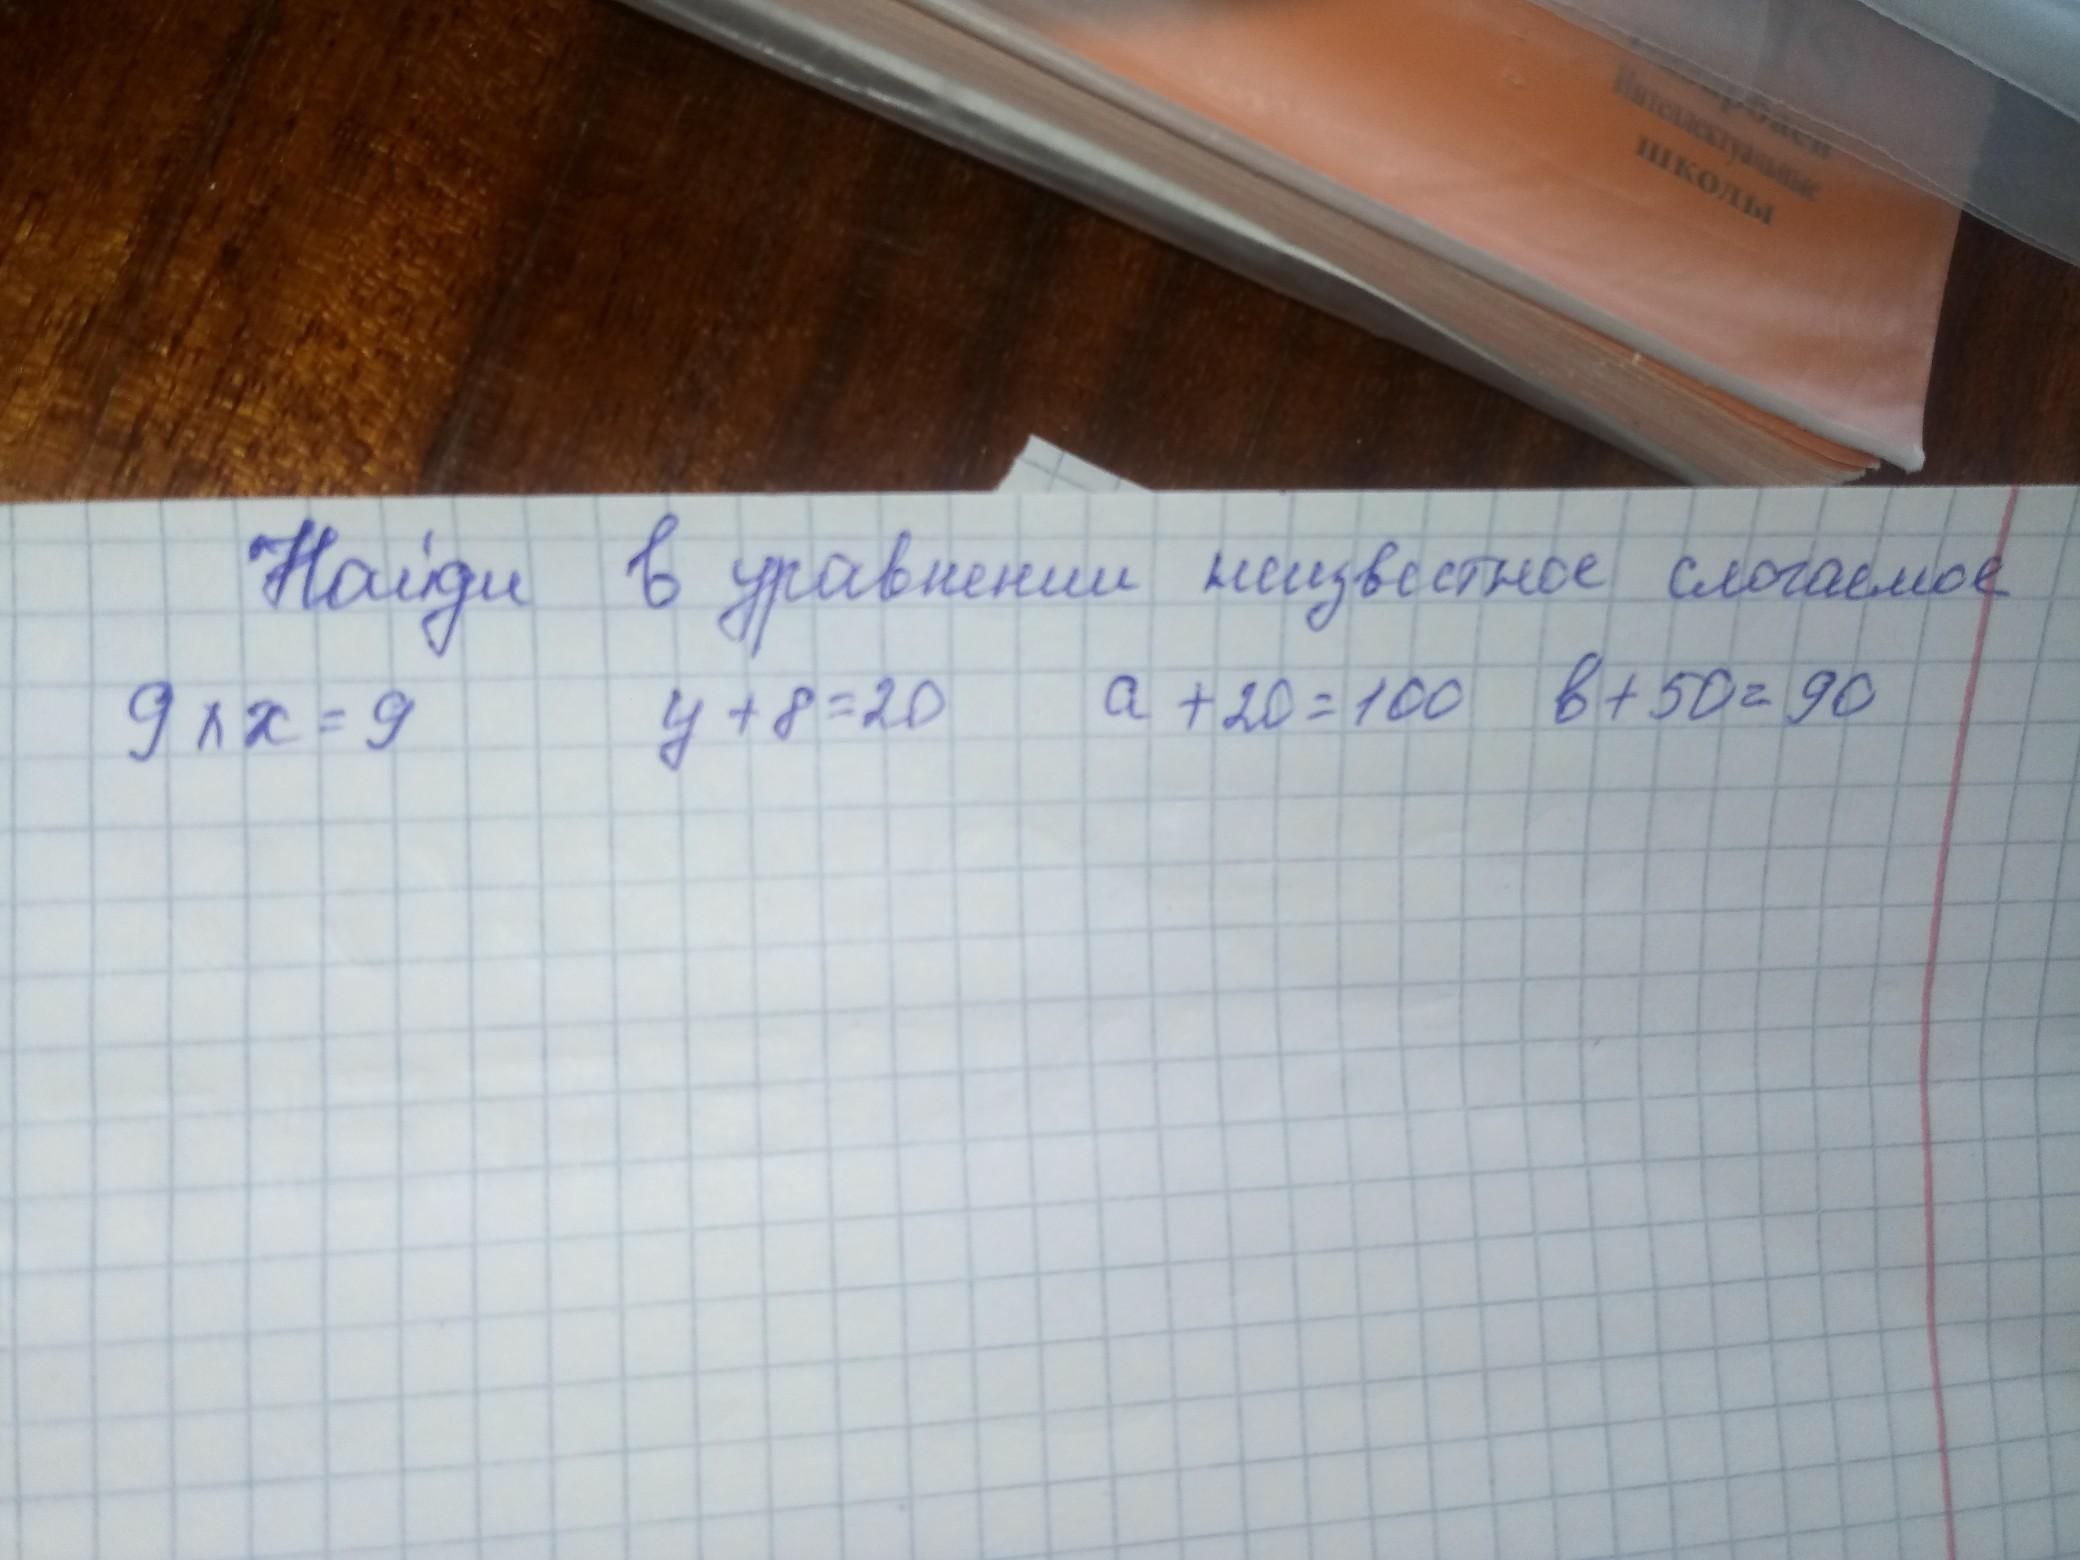 Интеллектуальные
школы
Найди в уравнении неизвестное слогаемое
9 + x = 9 y + 8 = 20 a + 20 = 100 в + 50 = 90